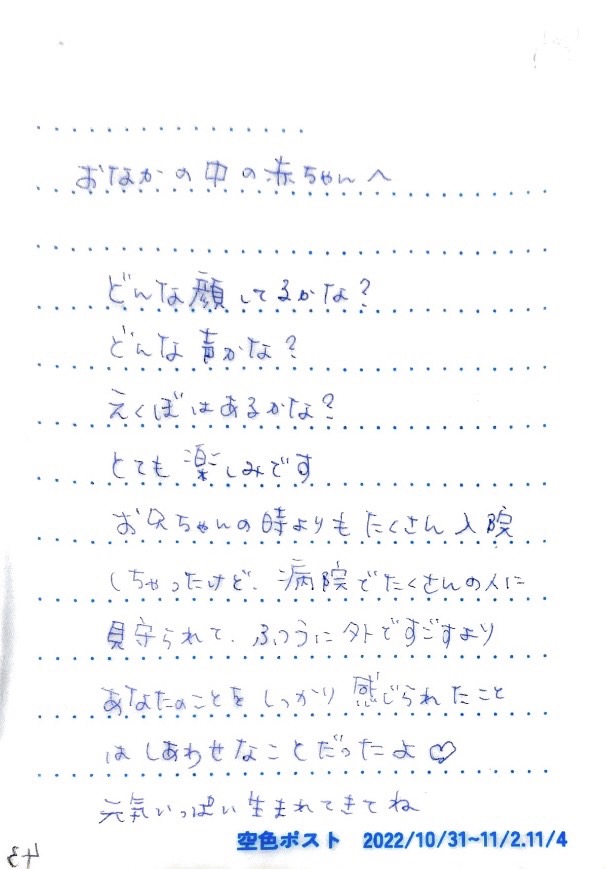 おなかの中の赤ちゃんへ
どんな顔してるかな？
どんな声かな？
えくぼはあるかな？
とても楽しみです
お兄ちゃんの時よりもたくさん入院
しちゃったけど、病院でたくさんの人に
見守られて、ふつうに外ですごすより
あなたのことをしっかり感じられたこと
はしあわせなことだったよ♡
元気いっぱい生まれてきてね
空色ポスト 2022/10/31~11/2.11/4
43